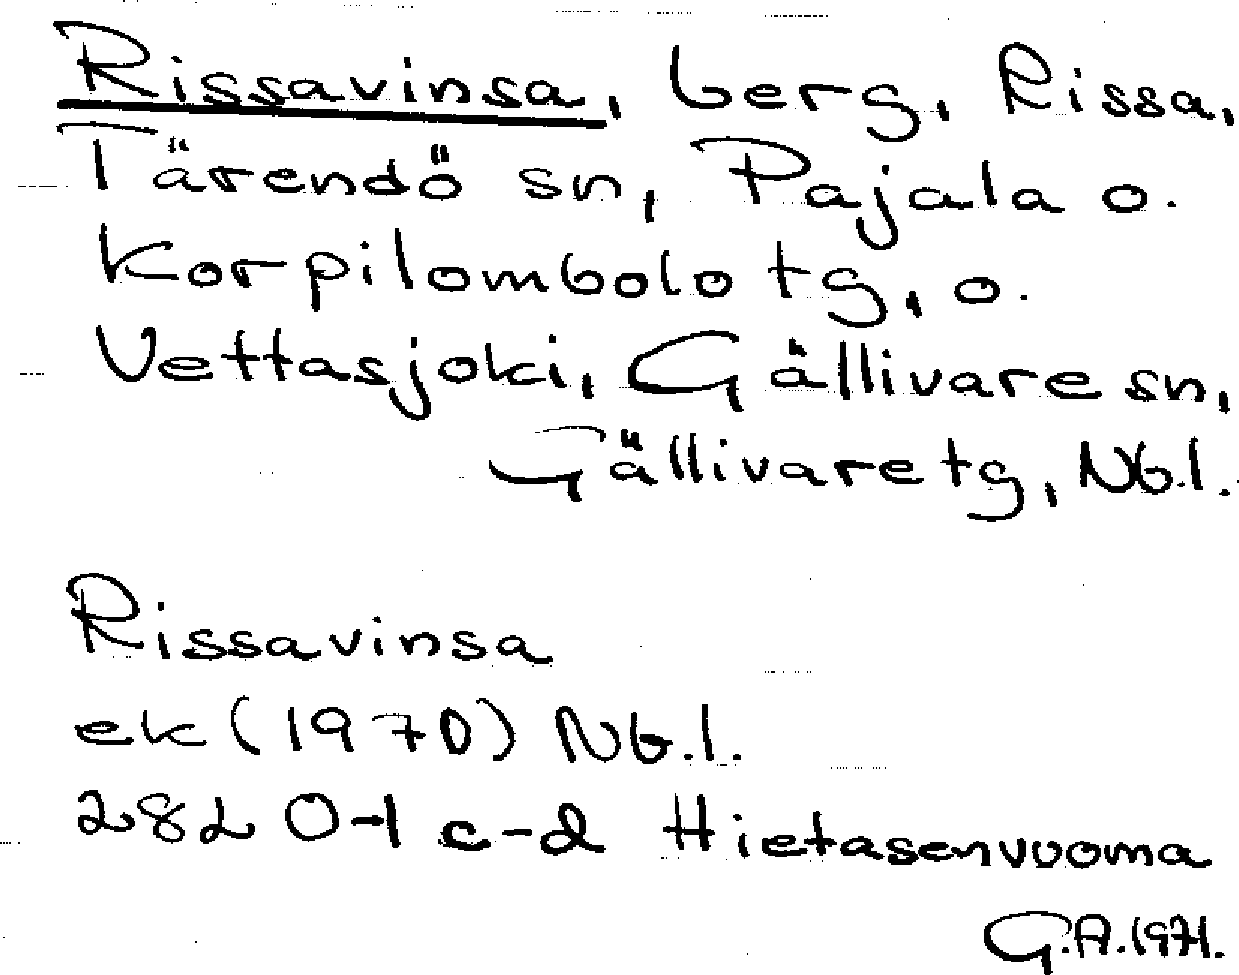 Rissavinsa, berg, Rissa,
Tärendö sn, Pajala o.
Korpilombolo tg, o.
Vettasjoki, Gällivare sn,
Gällivare tg, Nb.l.
Rissavinsa
ek (1970) Nb.l.
28L 0-1 c-d Hietasenvuoma
G.A.1971.